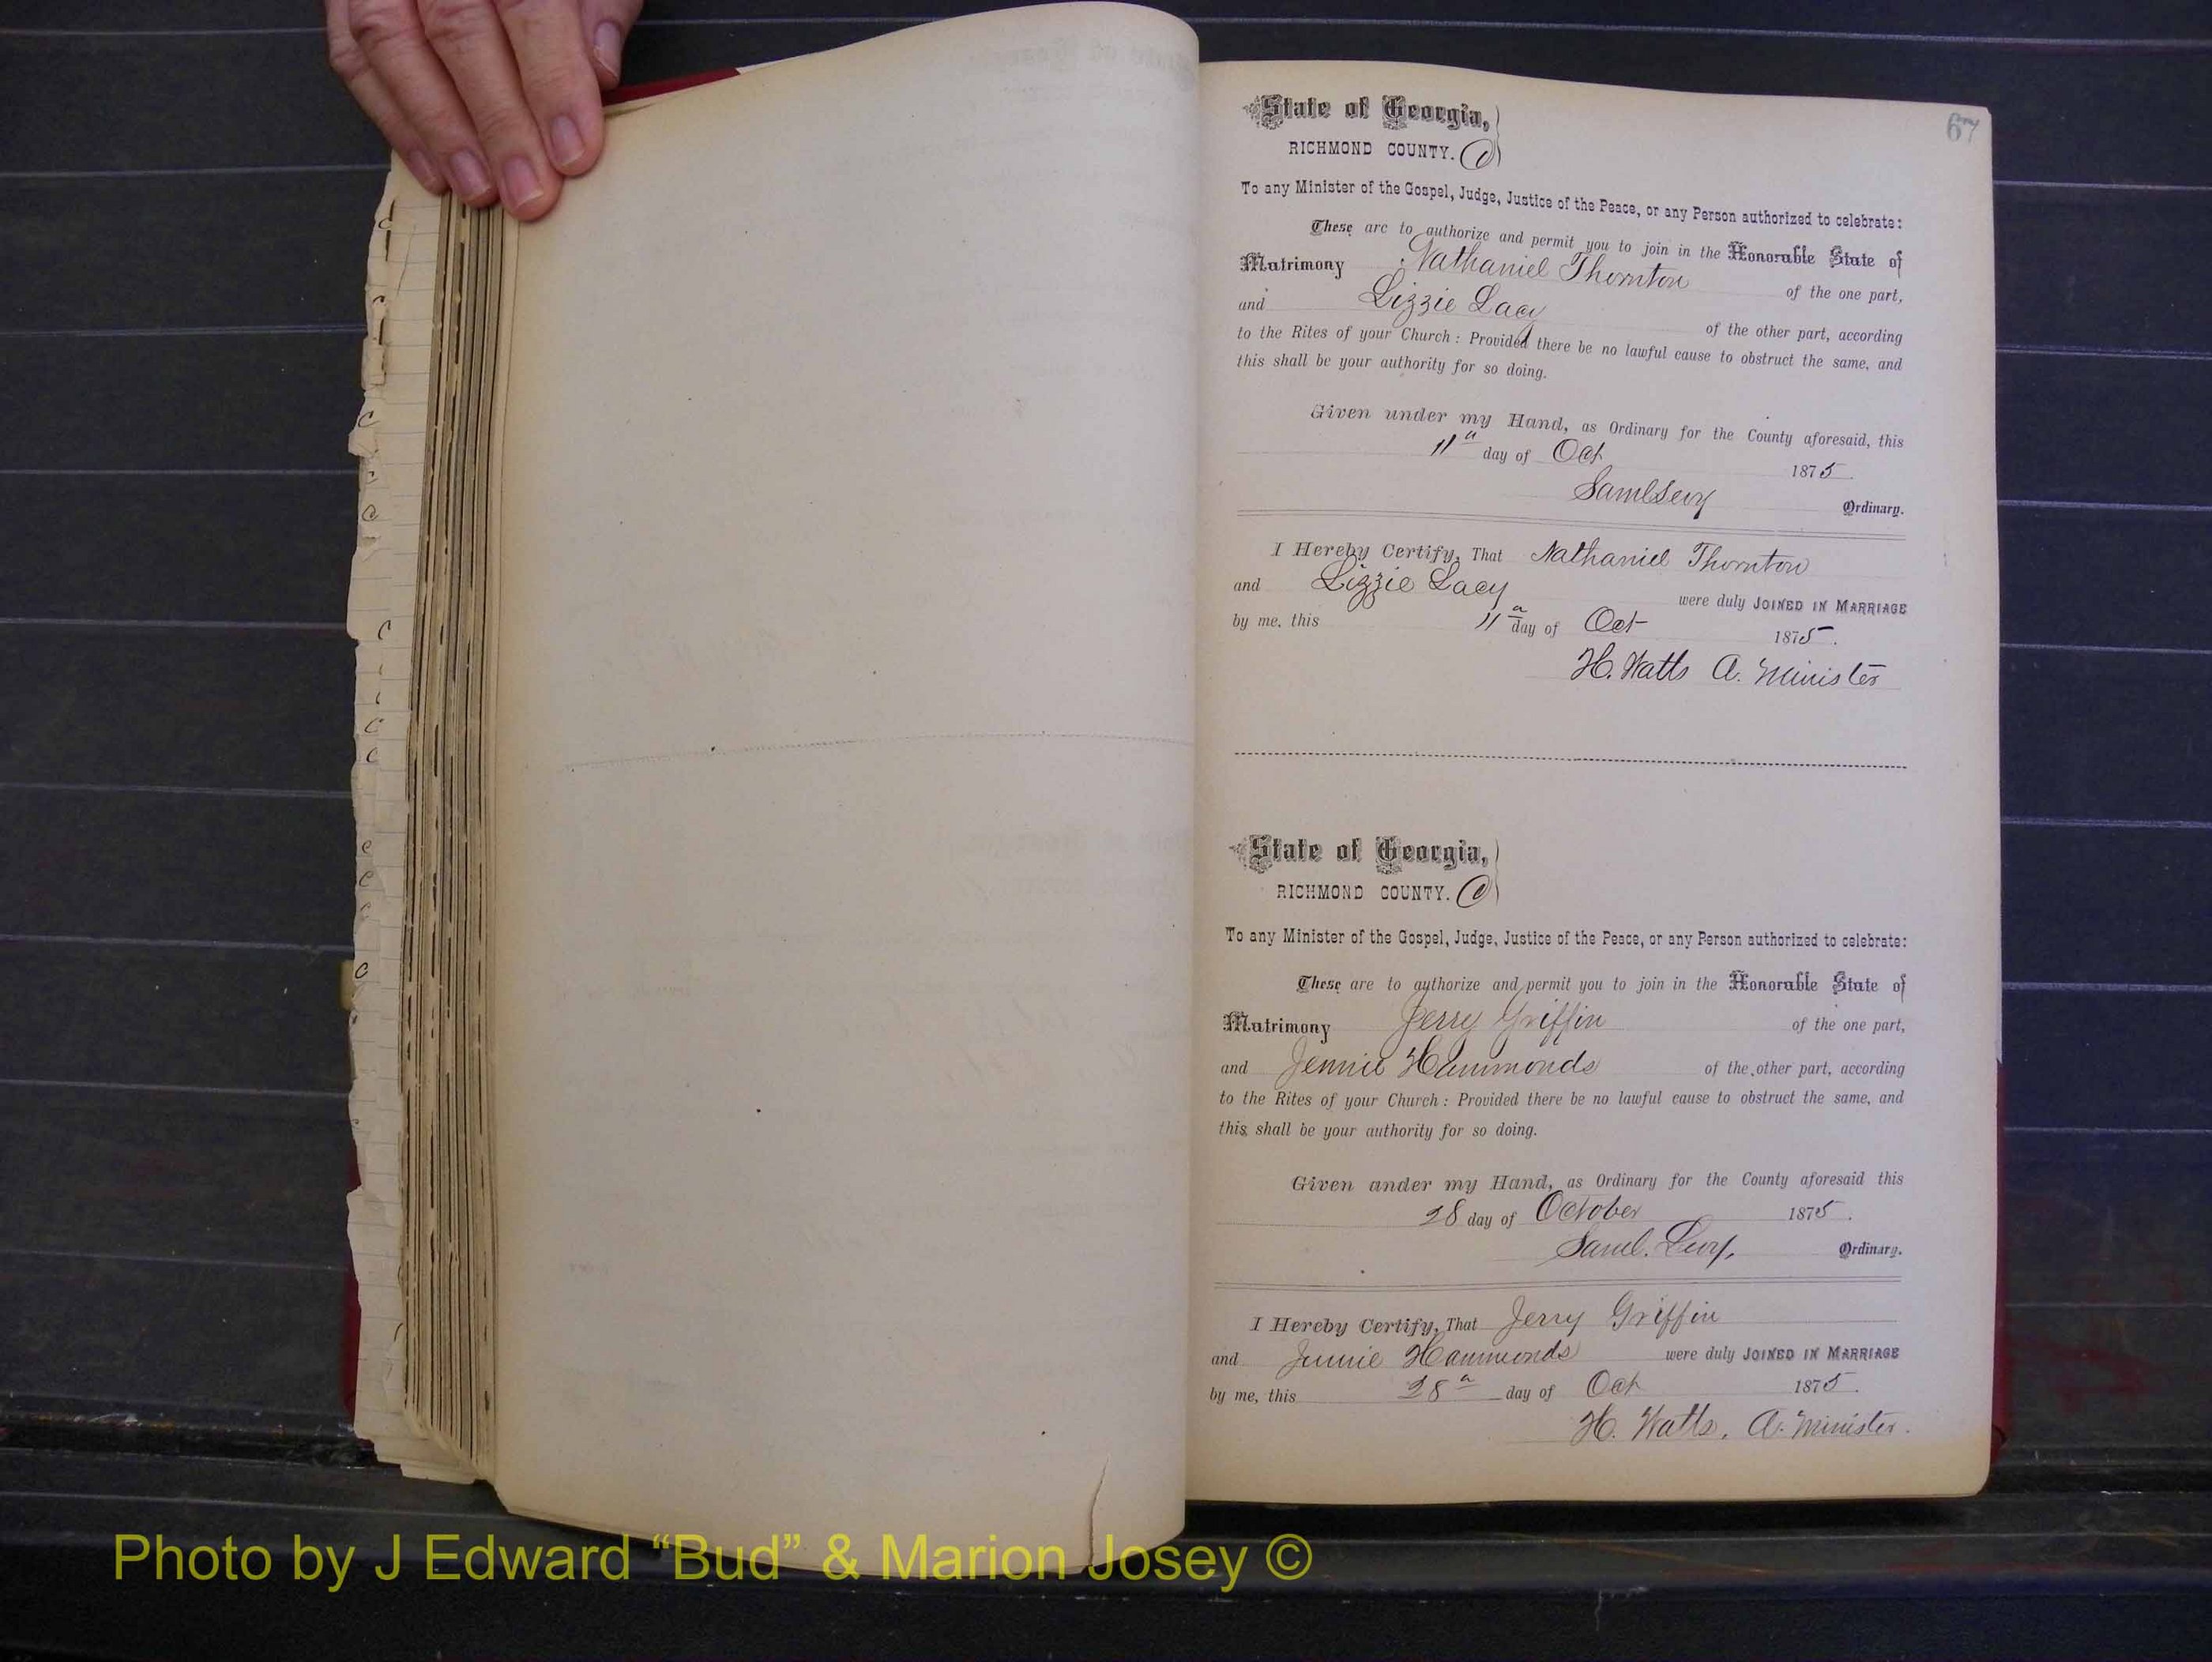 67
State of Georgia,
RICHMOND COUNTY. C
To any Minister of the Gospel, Judge, Justice of the Peace, or any Person authorized to celebrate:
These are to authorize and permit you to join in the Honorable State of
Matrimony Nathaniel Thornton of the one part,
and Lizzie Lacy of the other part, according
to the Rites of your Church: Provided there be no lawful cause to obstruct the same, and
this shall be your authority for so doing.
Given under my Hand, as Ordinary for the County aforesaid, this
11" day of Oct 1875
Saml Levy Ordinary.
I Hereby Certify, That Nathaniel Thornton
and Lizzie Lacy were duly JOINED IN MARRIAGE
by me, this 11 day of Oct 1875.
H. Watts A. Minister
State of Georgia,
RICHMOND COUNTY. C
To any Minister of the Gospel, Judge, Justice of the Peace, or any Person authorized to celebrate:
These are to authorize and permit you to join in the Honorable State of
Matrimony Jerry Griffin of the one part,
and Jennie Hammonds of the other part, according
to the Rites of your Church: Provided there be no lawful cause to obstruct the same, and
this shall be your authority for so doing.
Given under my Hand, as Ordinary for the County aforesaid this
28 day of October 1875.
Saml. Levy, Ordinary.
I Hereby Certify, That Jerry Griffin
and Jennie Hammonds were duly JOINED IN MARRIAGE
by me, this 28 day of Oct 1875.
H. Watts, A. Minister.
Photo by J Edward “Bud” & Marion Josey ©